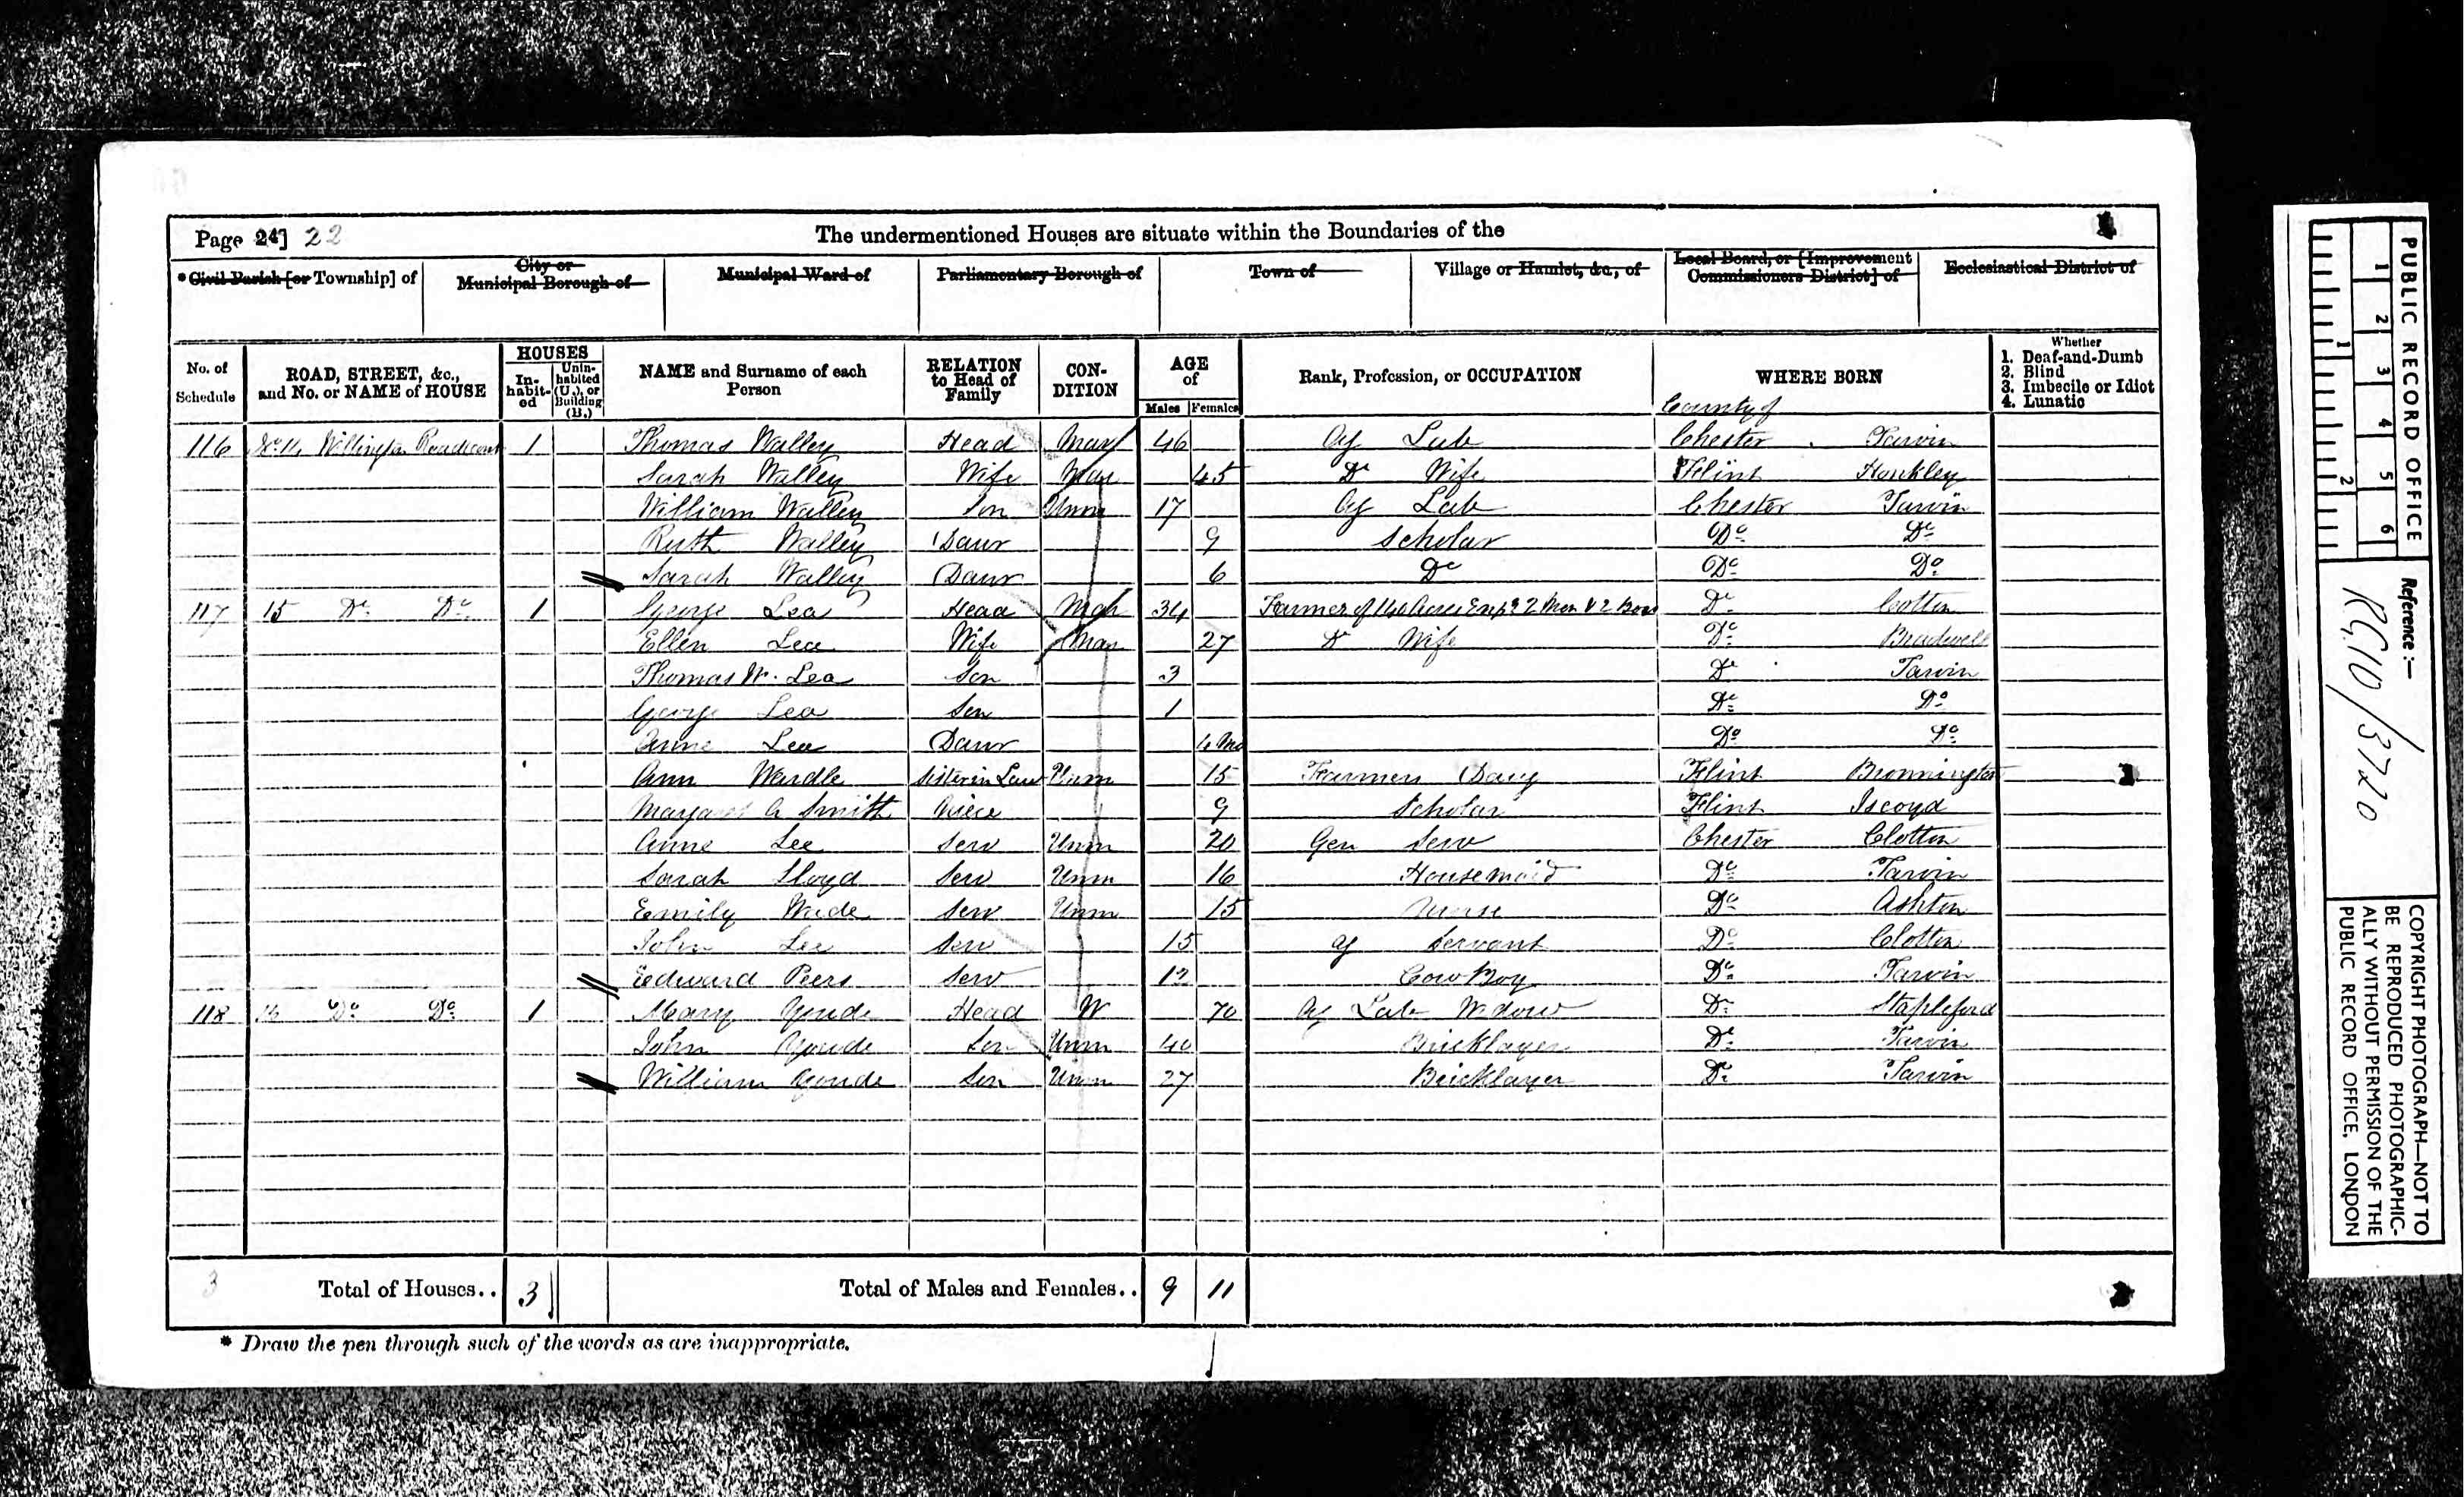 Page 24] 22
The undermentioned Houses are situate within the Boundaries of the
* Civil Parish [or Township] of
City or Municipal Borough of
Municipal Ward of
Parliamentary Borough of
Town of
Village or Hamlet, &c., of
Local Board, or [Improvement Commissioners District] of
Ecclesiastical District of
No. of Schedule
ROAD, STREET, &c., and No. or NAME of HOUSE
HOUSES
In-habit-ed
Unin-habited (U.), or Building (B.)
NAME and Surname of each Person
RELATION to Head of Family
CON-DITION
AGE of
Males Females
Rank, Profession, or OCCUPATION
WHERE BORN
Whether
1. Deaf-and-Dumb
2. Blind
3. Imbecile or Idiot
4. Lunatic
County of
116 Willington Road 1 Thomas Walley Head Mar 46 Ag Lab Chester Tarvin
Sarah Walley Wife Mar 45 Do Wife Flint
William Walley Son Unm 17 Ag Lab Chester Tarvin
Ruth Walley Daur 9 Scholar Do Do
Sarah Walley Daur 6 Do Do Do
117 15 Do Do 1 George Lea Head Mar 34 Farmer of 140 Acres Emp 2 Men & 2 Boys Do Cotton
Ellen Lea Wife Mar 27 Do Wife Do Bradwell
Thomas W. Lea Son 3 Do Tarvin
George Lea Son 1 Do Do
Anne Lea Daur 4 Mo Do Do
Ann Wardle Sister in Law Unm 15 Farmers Daug Flint Bronnington
Margaret A Smith Niece 9 Scholar Flint Iscoyd
Anne Lee Serv Unm 20 Gen Serv Chester Clotton
Sarah Lloyd Serv Unm 16 Housemaid Do Tarvin
Emily Wade Serv Unm 15 Nurse Do Ashton
John Lee Serv 15 Ag Servant Do Clotton
Edward Peers Serv 12 Cow Boy Do Tarvin
118 16 Do Do 1 Mary Goude Head W 70 Ag Lab Widow Do Stapleford
John Goude Son Unm 40 Bricklayer Do Tarvin
William Goude Son Unm 27 Bricklayer Do Tarvin
3 Total of Houses.. 3 Total of Males and Females.. 9 11
* Draw the pen through such of the words as are inappropriate.
PUBLIC RECORD OFFICE
1 2 3 4 5 6
1 2
Reference:—
RG10/3720
COPYRIGHT PHOTOGRAPH—NOT TO
BE REPRODUCED PHOTOGRAPHIC-
ALLY WITHOUT PERMISSION OF THE
PUBLIC RECORD OFFICE, LONDON